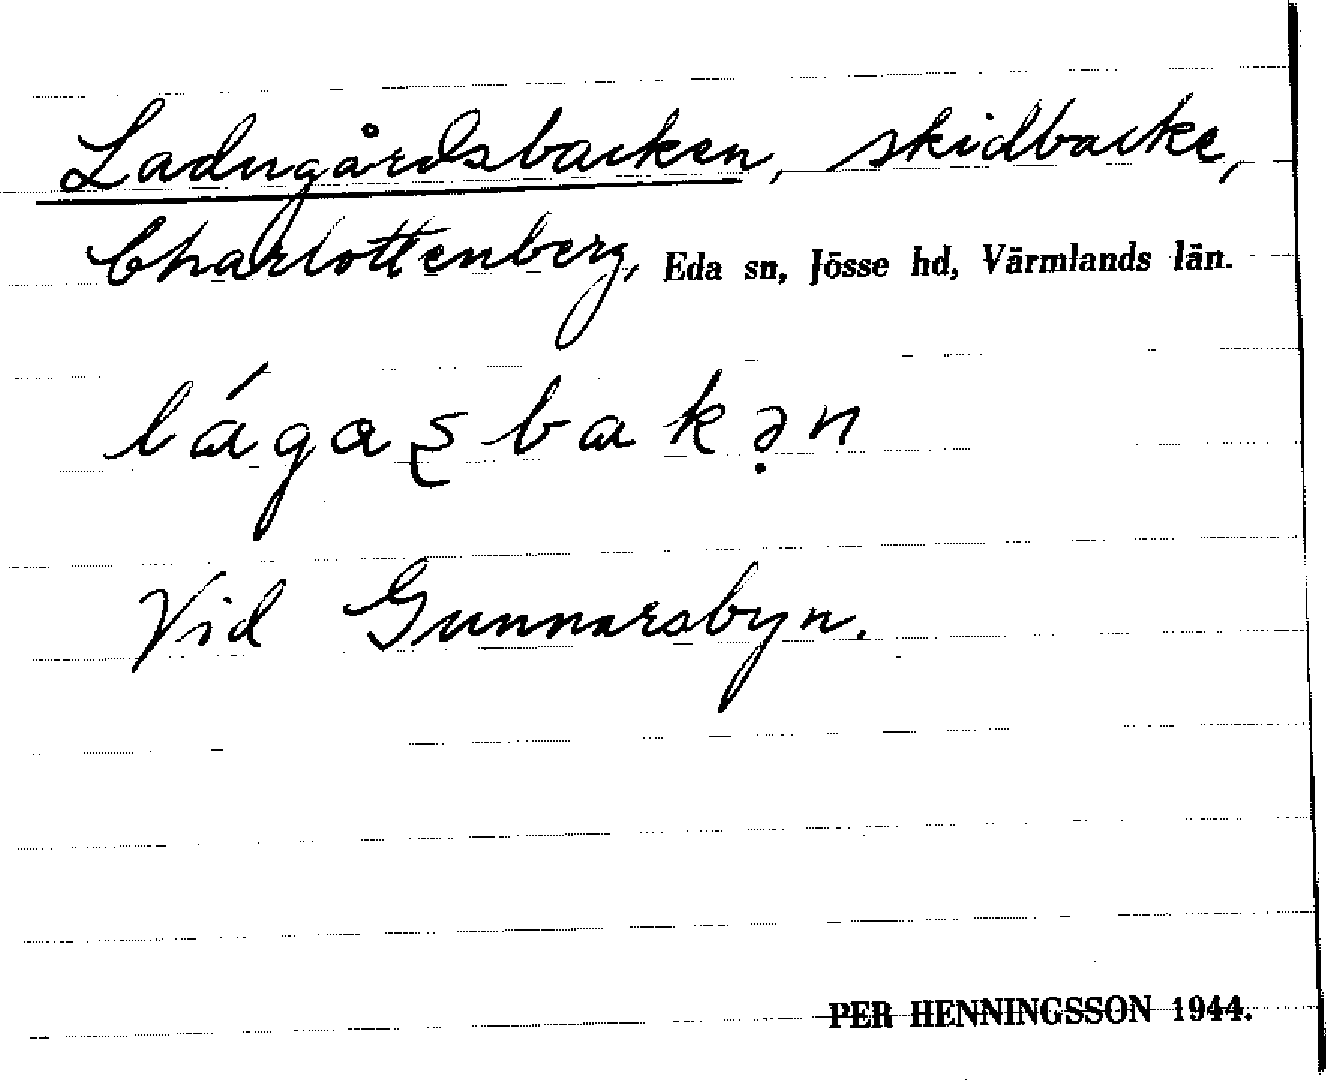 Ladugårdsbacken, skidbacke,
Charlottenberg, Eda sn, Jösse hd, Värmlands län.
lágaʂbakə̣n
Vid Gunnarsbyn.
PER HENNINGSSON 1944.